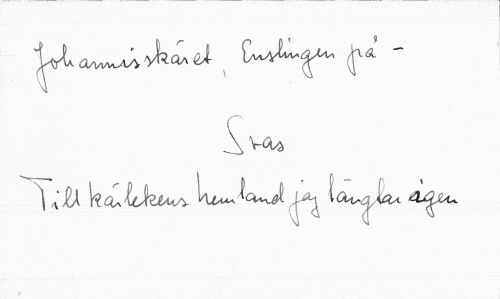 Johannisskäret, Enslingen på -
Svas
Till kärlekens hemland jag längtar igen